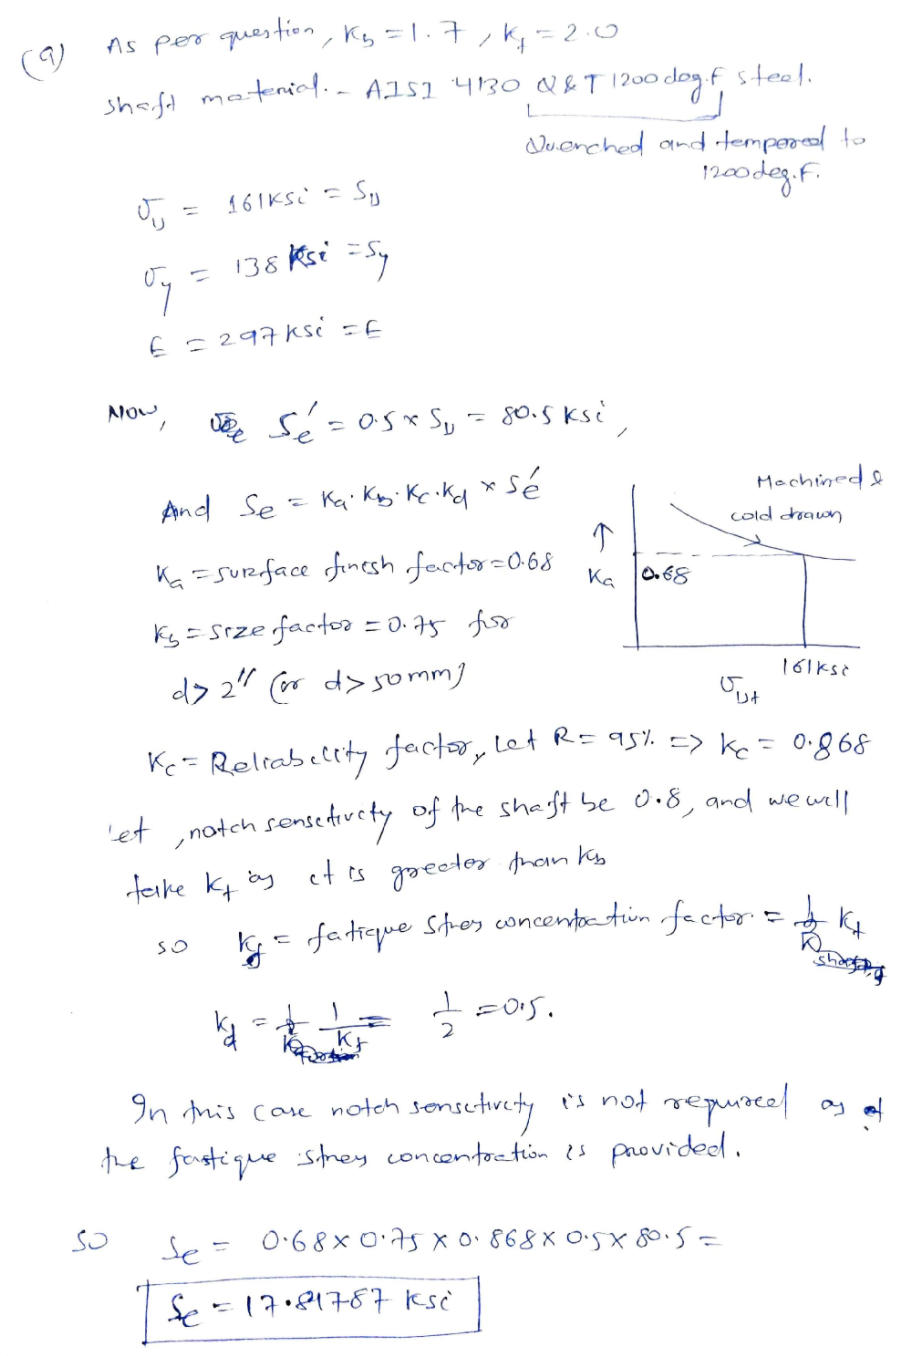 (a) As per question, Kb = 1.7, Kt = 2.0
shaft material. - AISI 4130 Q & T 1200 deg.f steel.
Quenched and tempered to
1200 deg.f.
σu = 161 ksi = Su
σy = 138 ksi = Sy
E = 297 ksi = E
Now, Se' = 0.5 × Su = 80.5 ksi,
And Se = Ka. Kb. Kc. Kd × Se'
Machined &
cold drawn
Ka = surface finish factor = 0.68
↑
Ka
0.68
Kb = size factor = 0.75 for
d > 2" (or d > 50mm)
161 ksi
σut
Kc = Reliability factor, Let R = 95% => Kc = 0.868
let, notch sensitivity of the shaft be 0.8, and we will
take Kt as it is greater than Kb
so Kf = fatique stres concentration factor = Kt
Kd = 1/Kf = 1/2 = 0.5.
In this case notch sensitivity is not required as
the fastique stres concentration is provided.
so Se = 0.68 × 0.75 × 0.868 × 0.5 × 80.5 =
Se = 17.81787 ksi